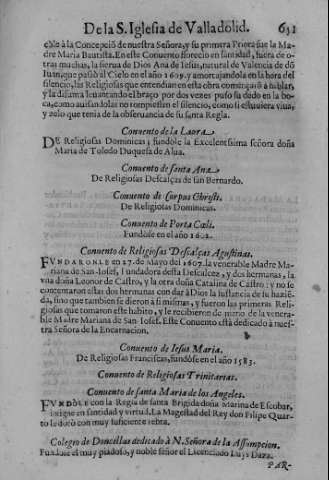 De la S. Iglesia de Valladolid. 631
cōse à la Concepciō de nuestra Señora, y su primera Priora fue la Ma-
dre Maria Bautista. En este Conuento florecio en santidad, fuera de o-
tras muchas, la sierua de Dios Ana de Iesus, natural de Valencia de dō
Iuan, que passò al Cielo en el año 1609. y amortajandola en la hora del
silencio, las Religiosas que entendian en esta obra començarō à hablar,
y la difunta leuantando el braço por dos vezes puso su dedo en la bo-
ca, como auisandolas no rompiessen el silencio, como si estuuiera viua,
y zelo que tenia de la obseruancia de su santa Regla.
Conuento de la Laura
DE Religiosas Dominicas; fundòle la Excelentissima señora doña
Maria de Toledo Duquesa de Alua.
Conuento de santa Ana
De Religiosas Descalças de san Bernardo.
Conuento de Corpus Christi.
De Religiosas Dominicas.
Conuento de Porta Cœli.
Fundòse en el año
Conuento de Religiosas Descalças Agustinas.
FVNDARONLE a 27. de Mayo del año 1607. la venerable Madre Ma-
riana de San Iosef, Fundadora desta Descalcez, y dos hermanas, la
vna doña Leonor de Castro, y la otra doña Catalina de Castro: y no se
contentaron estas dos hermanas con dar à Dios la sustancia de su haziē-
da, sino que tambien se dieron à si mismas, y fueron las primeras Reli-
giosas que tomaron este habito, y le recibieron de mano de la venera-
ble Madre Mariana de San Iosef. Este Conuento està dedicado à nues-
tra Señora de la Encarnacion.
Conuento de Iesus Maria.
De Religiosas Franciscas, fundòse en el año 1583.
Conuento de Religiosas Trinitarias.
Conuento de santa Maria de los Angeles.
FVNDÒLE con la Regla de santa Brigida doña Marina de Escobar,
insigne en santidad y virtud. La Magestad del Rey don Felipe Quar-
to le dotò con muy suficiente renta.
Colegio de Doncellas dedicado à N. Señora de la Assumpcion.
Fundòle el muy piadoso, y noble señor el Licenciado Luys Daza.
PAR-